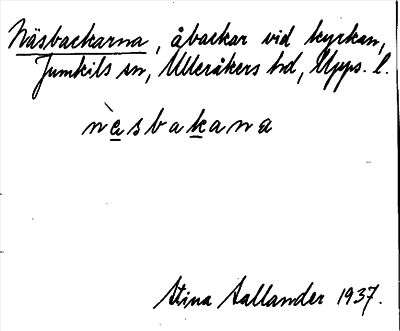 Näsbackarna, åbackar vid kyrkan,
Jumkils sn, Ulleråkers hd, Upps. l.
nèsbakana
Stina Aallander 1937.